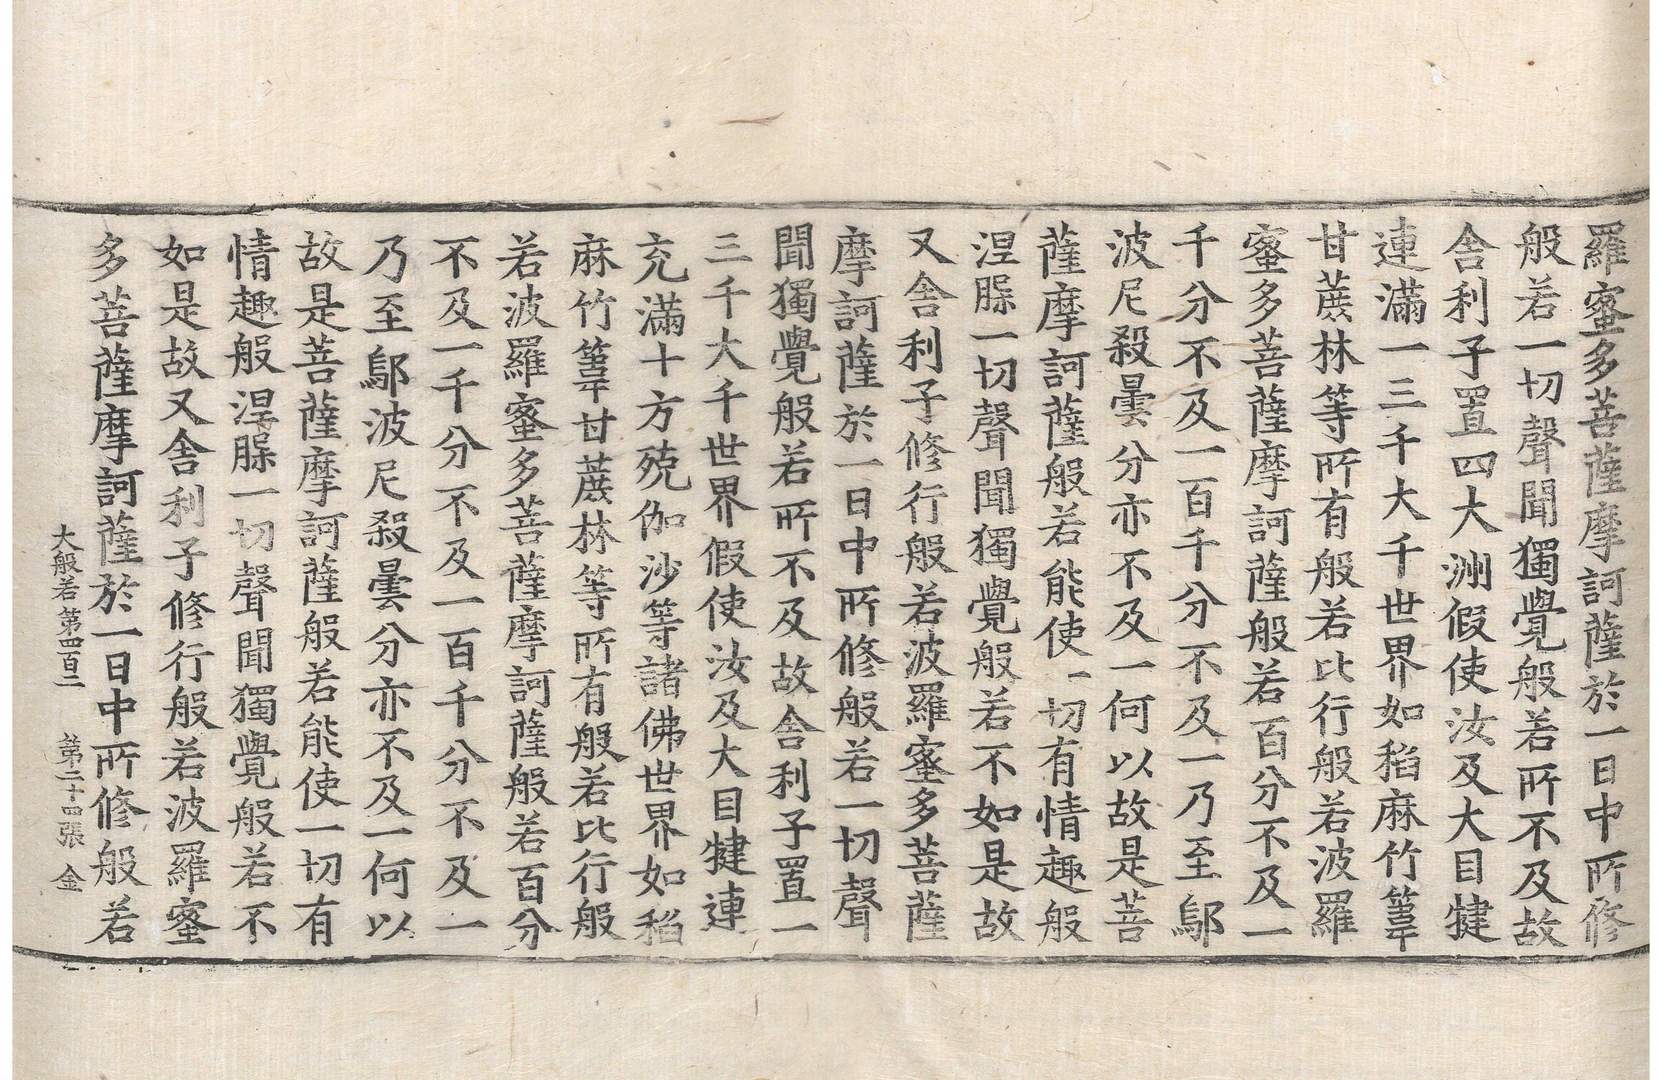 羅蜜多菩薩摩訶薩於一日中所修
般若一切聲聞獨覺般若所不及故
舍利子置四大洲假使汝及大目犍
連滿一三千大千世界如稻麻竹葦
甘蔗林等所有般若比行般若波羅
蜜多菩薩摩訶薩般若百分不及一
千分不及一百千分不及一乃至鄔
波尼殺曇分亦不及一何以故是菩
薩摩訶薩般若能使一切有情趣般
涅槃一切聲聞獨覺般若不如是故
又舍利子修行般若波羅蜜多菩薩
摩訶薩於一日中所修般若一切聲
聞獨覺般若所不及故舍利子置一
三千大千世界假使汝及大目犍連
充滿十方殑伽沙等諸佛世界如稻
麻竹葦甘蔗林等所有般若比行般
若波羅蜜多菩薩摩訶薩般若百分
不及一千分不及一百千分不及一
乃至鄔波尼殺曇分亦不及一何以
故是菩薩摩訶薩般若能使一切有
情趣般涅槃一切聲聞獨覺般若不
如是故又舍利子修行般若波羅蜜
多菩薩摩訶薩於一日中所修般若
大般若第四百二 第二十四張 金